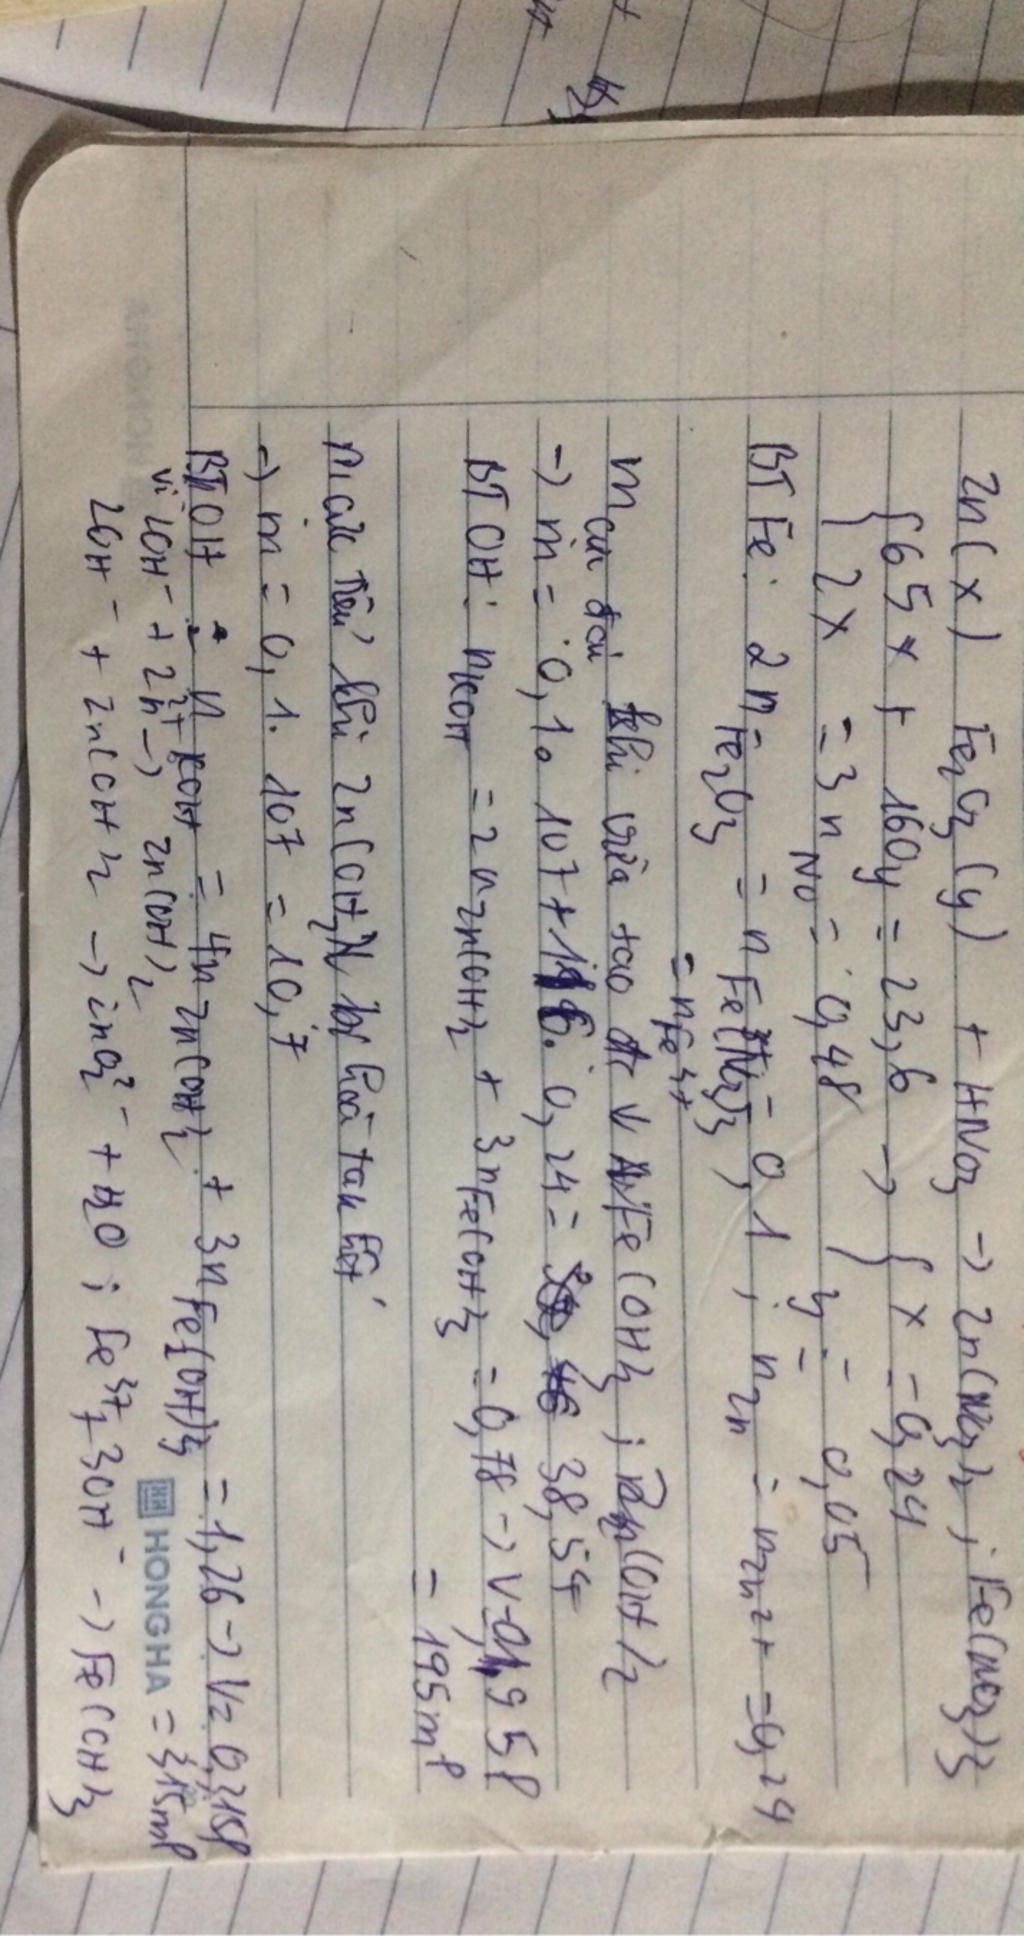 Zn(x) Fe2O3(y) + HNO3 → Zn(NO3)2 ; Fe(NO3)3
{ 65x + 160y = 23,6 → { x = 0,24
{ 2x = 3nNO = 0,48 } y = 0,05
BT Fe: 2nFe2O3 = nFe(NO3)3 = 0,1 ; nZn = nZn2+ = 0,24
= nFe3+
m cực đại khi vừa tạo đc ↓ Fe(OH)3 ; Zn(OH)2
→ m = 0,1. 107 + 0,24 = 38,54
BT OH: nKOH = 2nZn(OH)2 + 3nFe(OH)3 = 0,78 → V = 0,195l
= 195ml
m cực tiểu khi Zn(OH)2 bị hoà tan hết
→ m = 0,1. 107 = 10,7
BTOH : nKOH = 4nZn(OH)2 + 3nFe(OH)3 = 1,26 → V = 0,315l
vì 2OH- + Zn2+ → Zn(OH)2
HONGHA = 315ml
2OH- + Zn(OH)2 → ZnO2 2- + H2O ; Fe3+ + 3OH- → Fe(OH)3